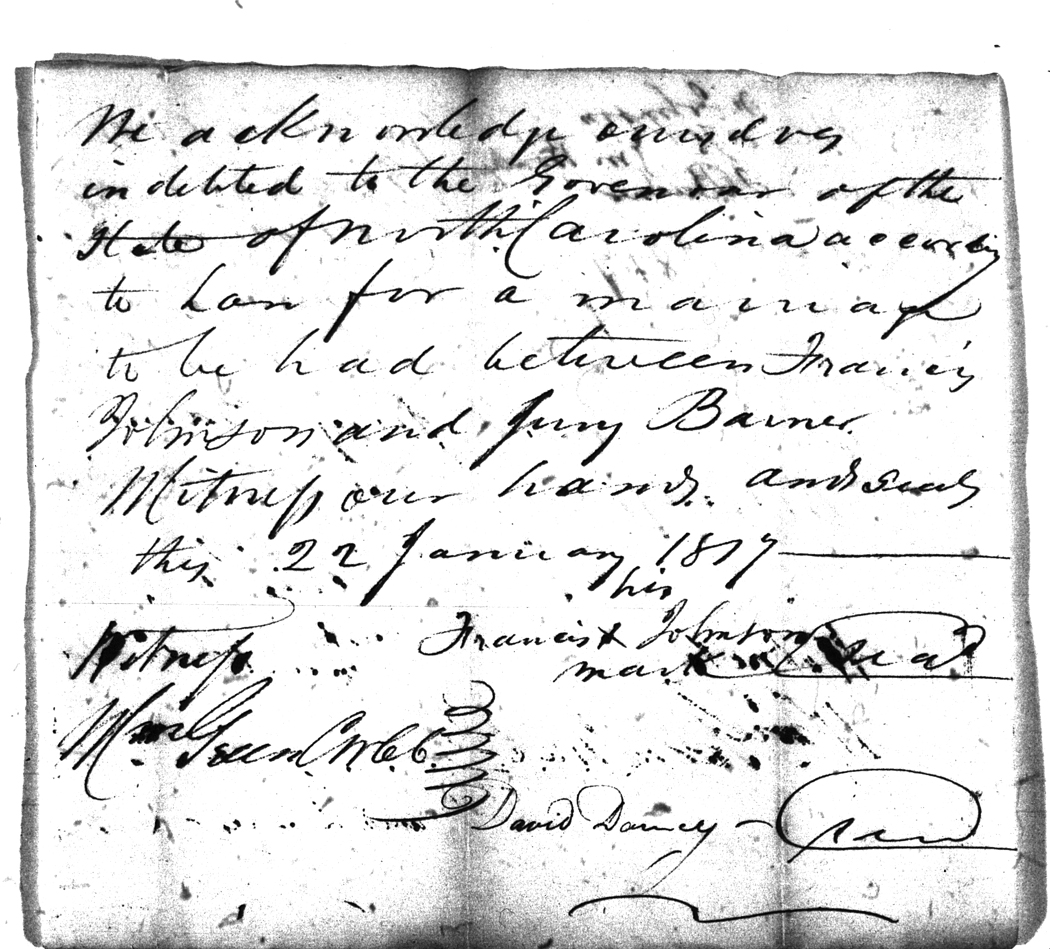 We acknowledge ourselves
indebted to the Govenour of the
State of North Carolina according
to Law for a marriage
to be had between Francis
Johnson and Barner
Witness our hands and seals
this 22 January 1817
his
Witness Francis X Johnson Seal
mark
Wm Green
David seal